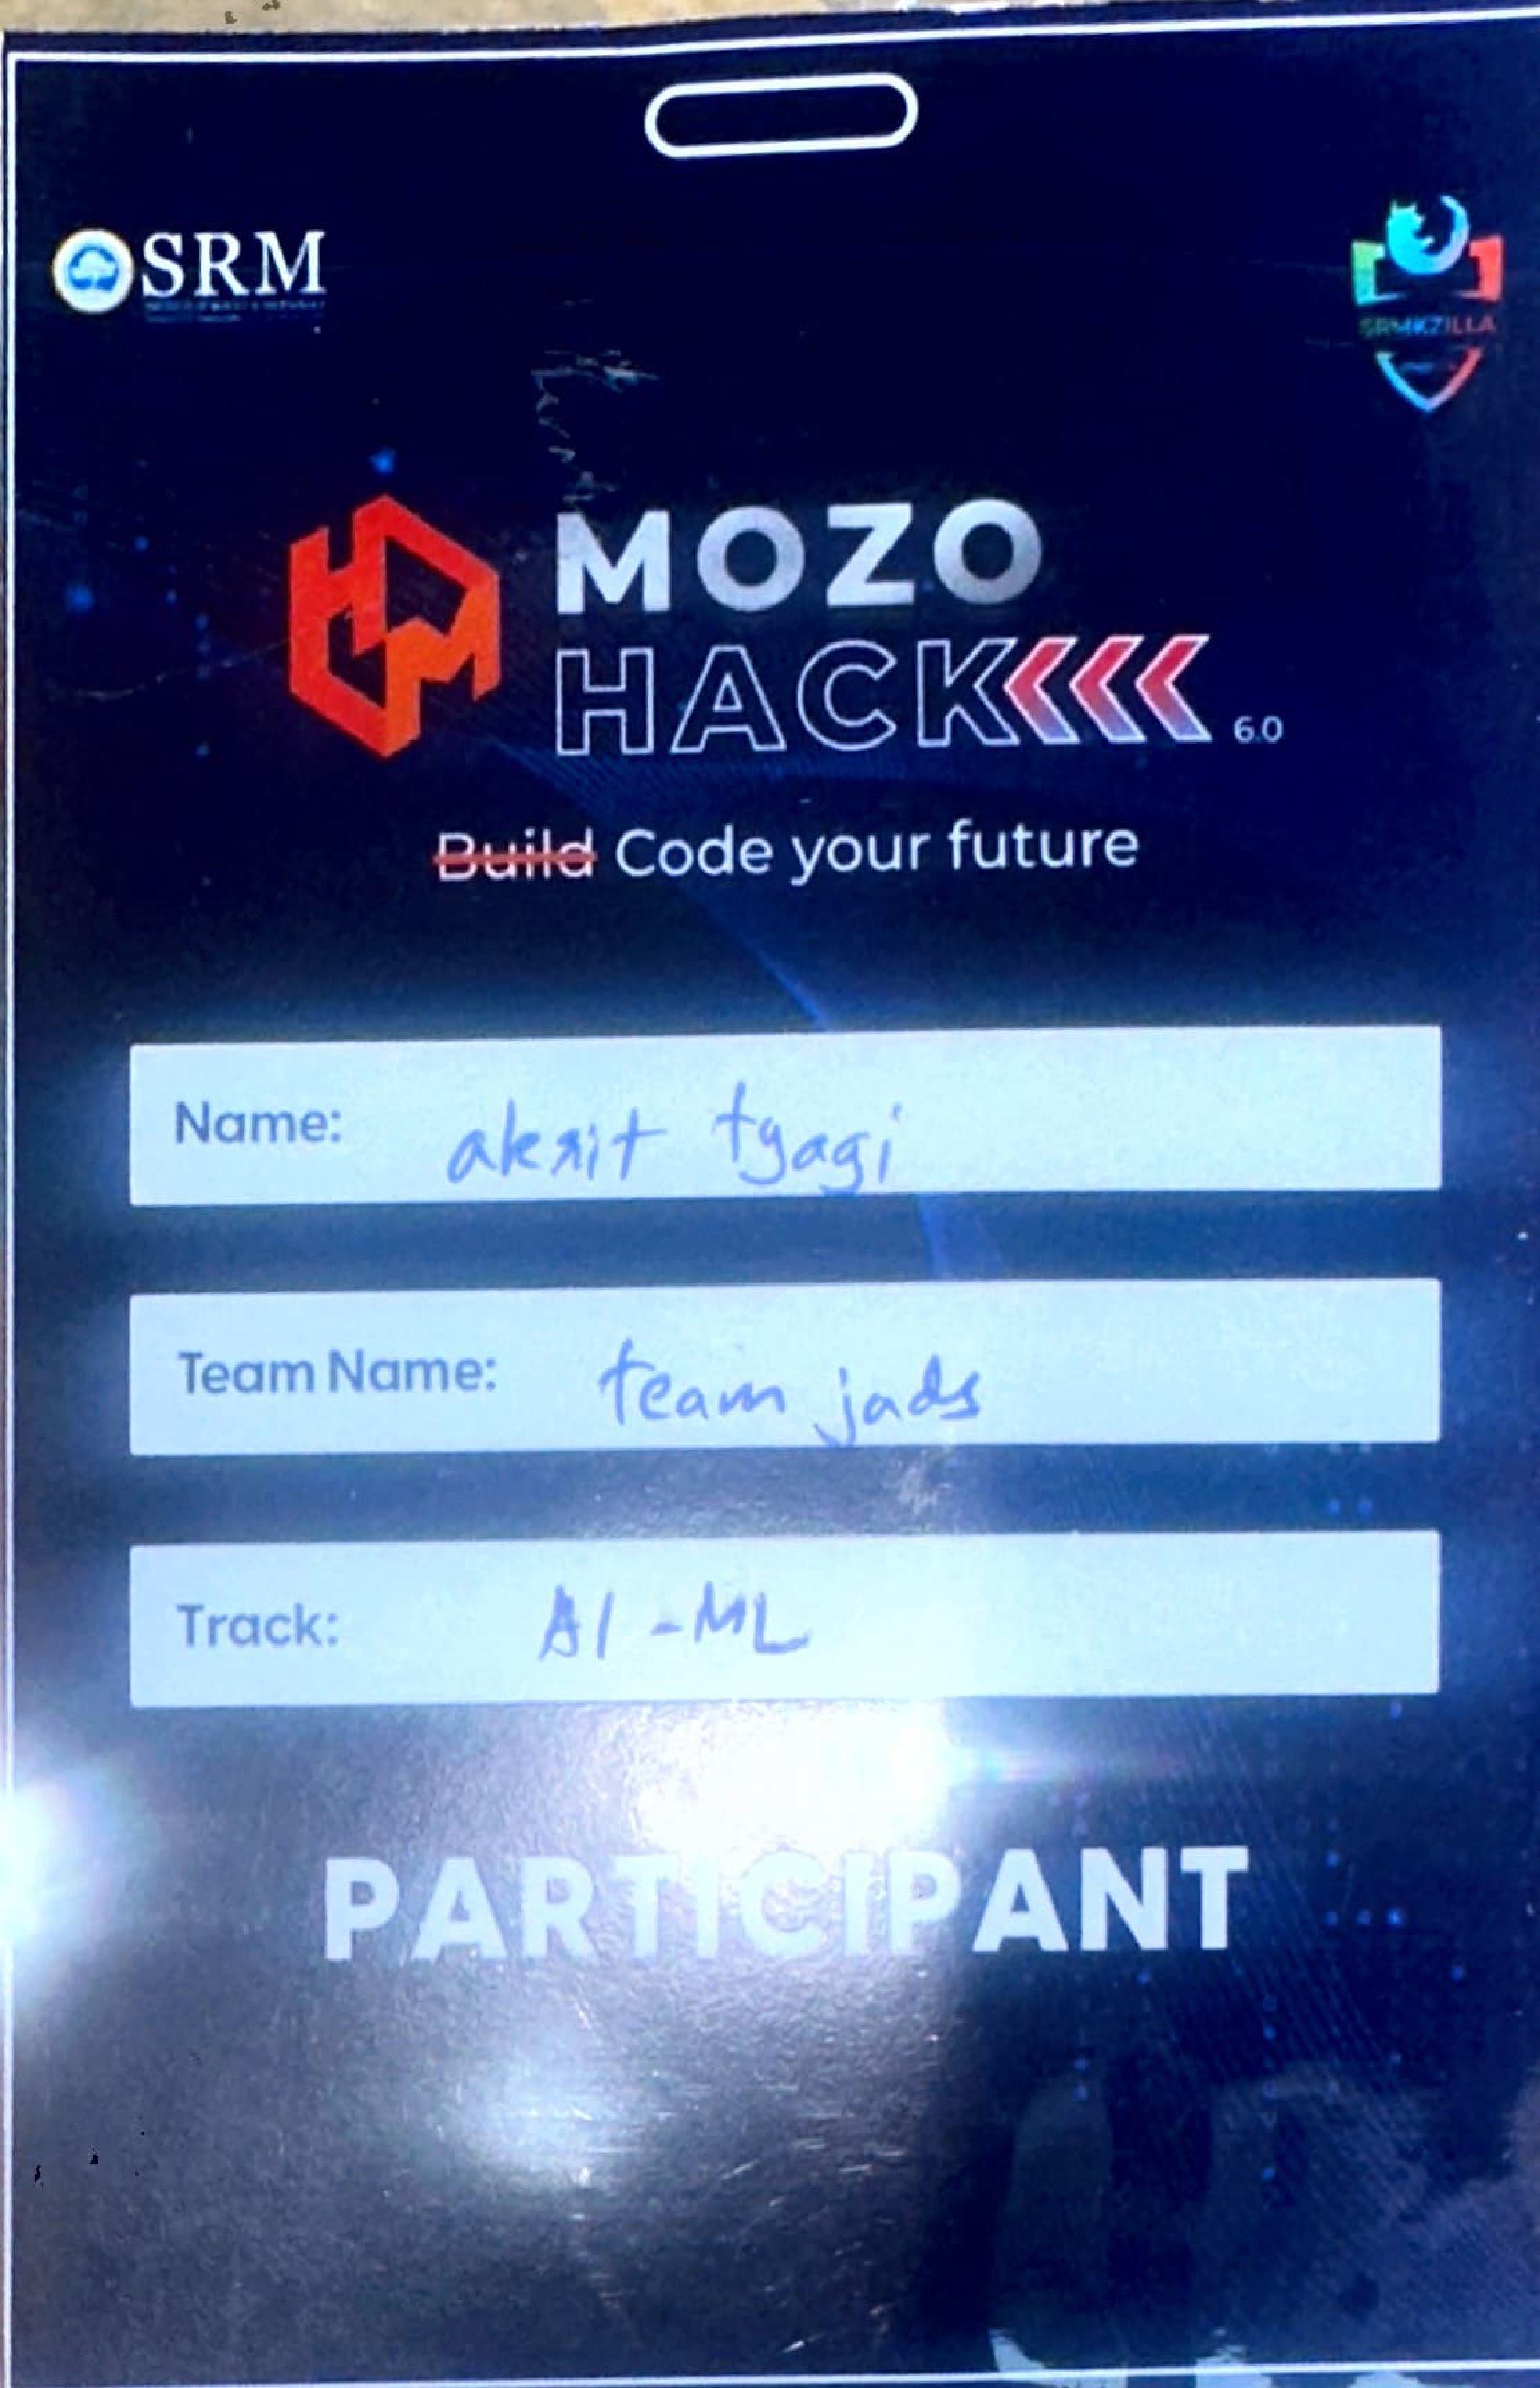 SRM
SRMKZILLA
MOZO
HACK
6.0
Build Code your future
Name: aksit tyagi
Team Name: team jads
Track: AI-ML
PARTICIPANT